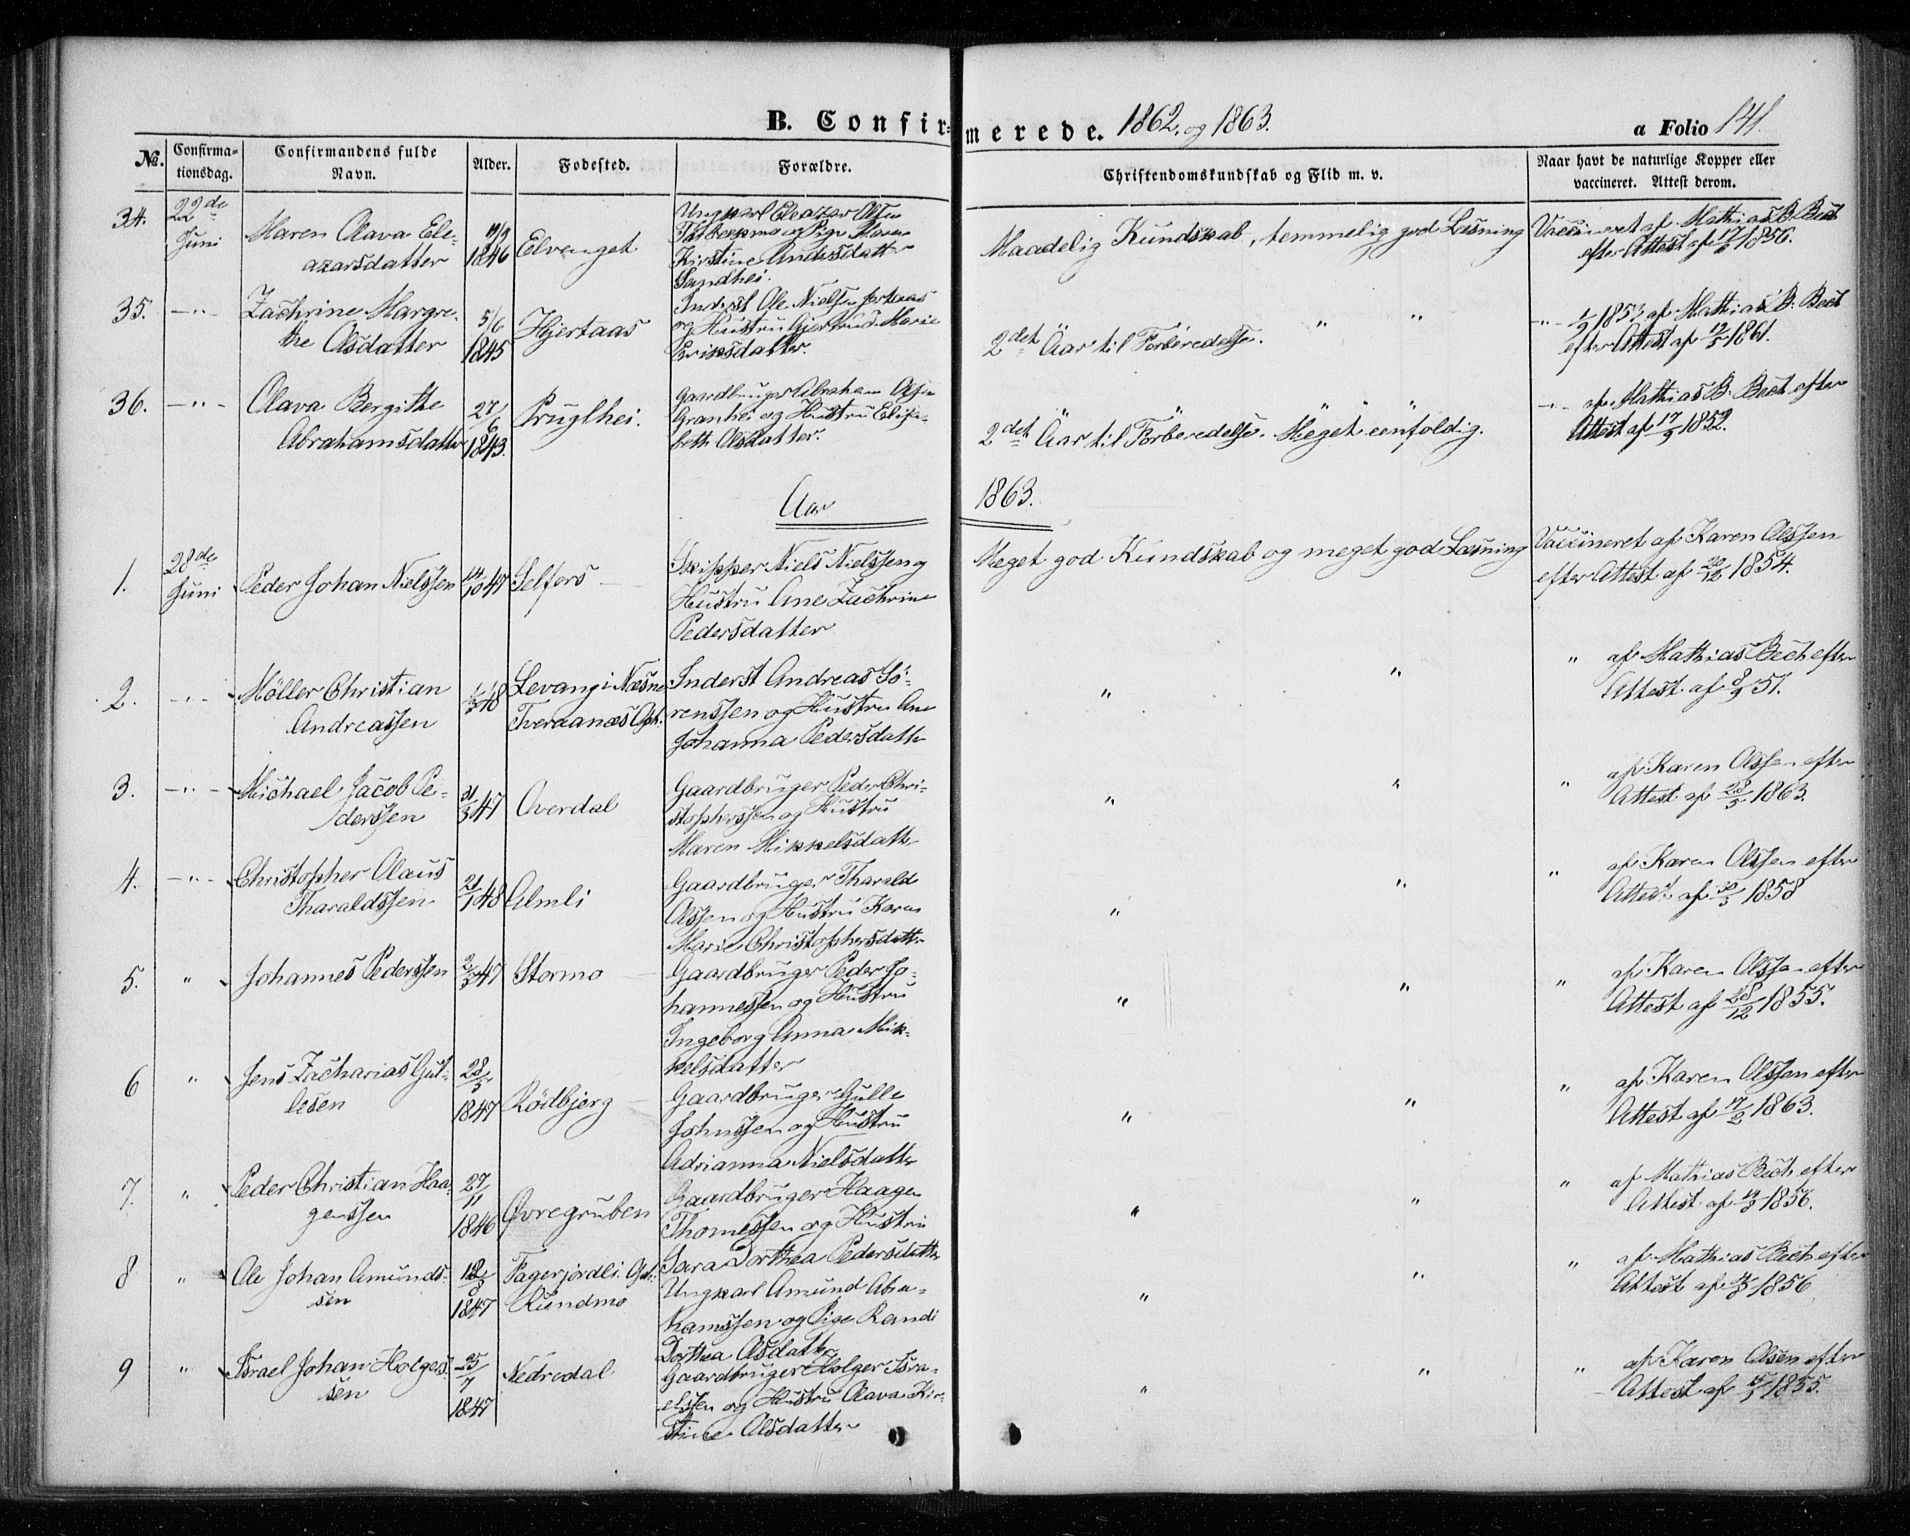 B. Confirmerede. 1862, og 1863.
a Folio 141.
No. Confirmationsdag. Confirmandens fulde Navn. Alder. Fodested. Forældre. Christendomskundskab og Flid m. v. Naar havt de naturlige Kopper eller vaccineret. Attest derom.
34. 22de Juni
Maren Olava Ele-
azarsdatter
1846
Elvenget
Ungkarl Eleazar Olsen
og Pige Maren
Kirstine Andersdatter
Sandhei.
Maadelig Kundskab, temmelig god Læsning
Vaccineret af Mathias B. Bech
efter Attest af 1856.
35. -"-
Zachrine Margre-
the Olsdatter
5/6
1845
Hjertaas
Inderst Ole Nielsen Hjertaas
og Hustru Gjertrud Marie
Eriksdatter.
2det Aar til Forberedelse. " "
-"- 1853 af Mathias B. Bech
efter Attest af 1861.
36. -"-
Olava Bergithe
Abrahamsdatter
27/6
1843.
Pruglhei.
Gaardbruger Abraham Olsen
Granhei og Hustru Elisa-
beth Olsdatter.
2det Aar til Forberedelse. Meget eenfoldig.
-"- af Mathias B. Bech efter
Attest af 17/9 1852.
Aar 1863.
1. 28de Juni
Peder Johan Nielssen
14/10 47
Selfors
Skipper Niels Nielssen og
Hustru Ane Zachrine
Pedersdatter
Meget god Kundskab og meget god Læsning
Vaccineret af Karen Olssen
efter Attest af 20/12 1854.
2. -"-
Møller Christian
Andreassen
1/3 48
Levang i Næsne
Tveraanæs Oph.
Inderst Andreas Sö-
renssen og Hustru Ane
Johanna Pedersdatter
" "
" af Mathias Bech efter
Attest af 8/9 51.
3. -"-
Michael Jacob Pe-
derssen
21/3 47
Overdal
Gaardbruger Peder Chri-
stopherssen og Hustru
Maren Mikkelsdatter
" "
" af Karen Olssen efter
Attest af 28/5 1863.
4. -"-
Christopher Olaus
Tharaldssen
21/1 48
Almli
Gaardbruger Tharald
Olssen og Hustru Karen
Marie Christophersdatter
" "
" af Karen Olssen efter
Attest af 30/5 1858
5. "
Johannes Pederssen
2/3 47
Stormo
Gaardbruger Peder Jo-
hannessen og Hustru
Ingeborg Anna Mik-
kelsdatter
" "
" af Karen Olssen efter
Attest af 28/12 1855.
6 "
Jens Zacharias Gul-
lesen
28/5
1847
Rödbjerg
Gaardbruger Gulle
Johnssen og Hustru
Adrianna Nielsdatter
" "
" af Karen Olssen efter
Attest af 17/2 1863.
7. "
Peder Christian Haa-
genssen
27/11
1846
Øvregruben
Gaardbruger Haagen
Thomessen og Hustru
Sara Dorthea Pedersdatter
" "
" af Mathias Bech efter
Attest af 1856.
8 "
Ole Johan Amunds-
sen
12/8
1847
Fagerjordli. Opf.
Rundmo
Ungkarl Amund Abra-
hamssen og Pige Randi
Dorthea Olsdatter
" "
" af Mathias Bech efter
Attest af 1856
9 "
Israel Johan Holges-
sen
25/7
1847
Nedredal
Gaardbruger Holger Isra-
elssen og Hustru Olava Kir-
stine Olsdatter
" "
" af Karen Olsen efter
Attest af 1855.